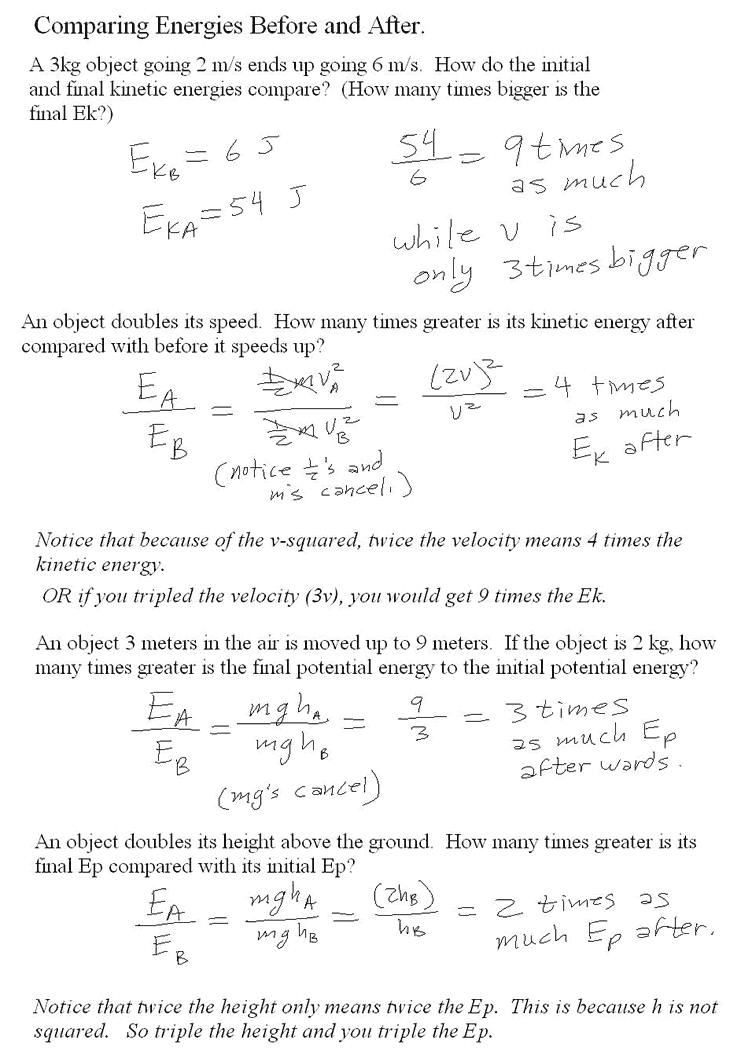 Comparing Energies Before and After.
A 3kg object going 2 m/s ends up going 6 m/s. How do the initial
and final kinetic energies compare? (How many times bigger is the
final Ek?)
E_KB = 6 J
E_KA = 54 J
54/6 = 9 times
as much
while v is
only 3 times bigger
An object doubles its speed. How many times greater is its kinetic energy after
compared with before it speeds up?
E_A/E_B = ½mv_A²/½mv_B² = (2v)²/v² = 4 times
as much
E_K after
(notice ½'s and
m's cancel.)
Notice that because of the v-squared, twice the velocity means 4 times the
kinetic energy.
OR if you tripled the velocity (3v), you would get 9 times the Ek.
An object 3 meters in the air is moved up to 9 meters. If the object is 2 kg, how
many times greater is the final potential energy to the initial potential energy?
E_A/E_B = mgh_A/mgh_B = 9/3 = 3 times
as much Ep
after wards.
(mg's cancel)
An object doubles its height above the ground. How many times greater is its
final Ep compared with its initial Ep?
E_A/E_B = mgh_A/mgh_B = (2h_B)/h_B = 2 times as
much Ep after.
Notice that twice the height only means twice the Ep. This is because h is not
squared. So triple the height and you triple the Ep.